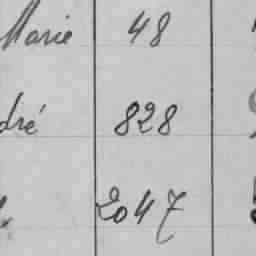 Marie 48
dré 828
2047